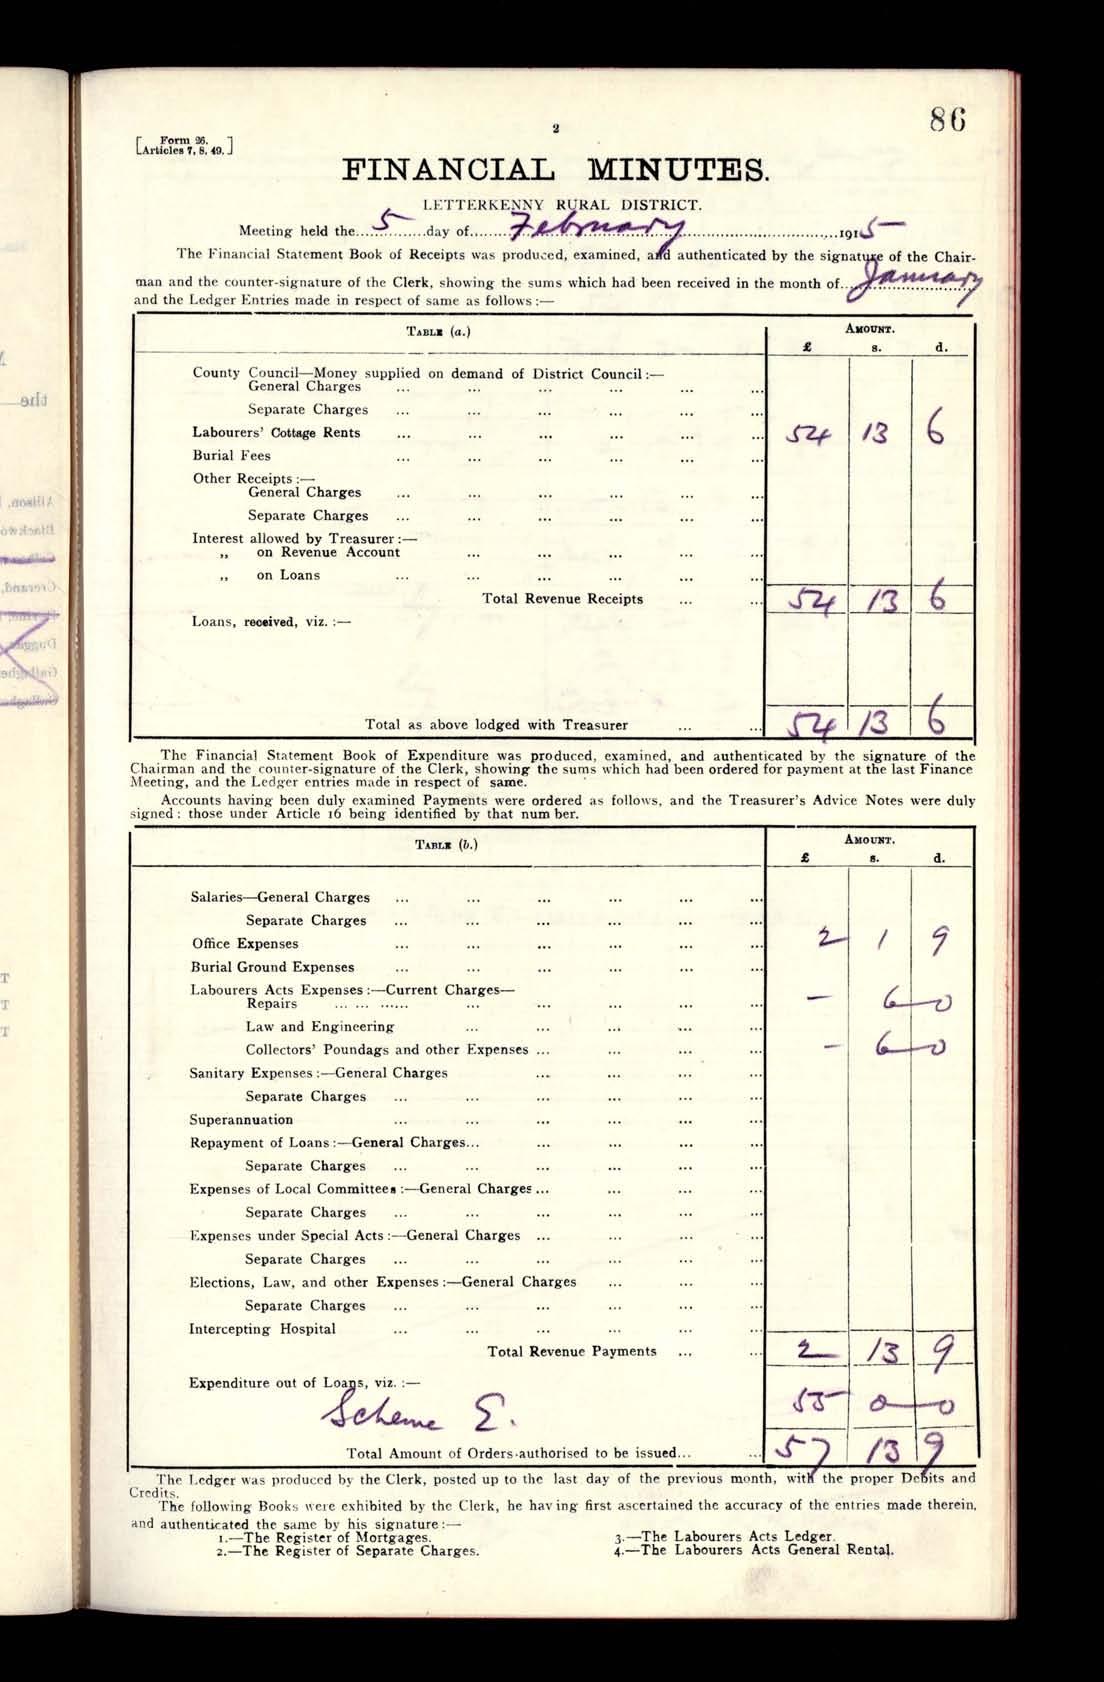 86
2
[Form 26.
Articles 7, 8, 49.]
FINANCIAL MINUTES.
LETTERKENNY RURAL DISTRICT.
Meeting held the 5 day of February 1915
The Financial Statement Book of Receipts was produced, examined, and authenticated by the signature of the Chair-
man and the counter-signature of the Clerk, showing the sums which had been received in the month of January
and the Ledger Entries made in respect of same as follows :—
TABLE (a.) AMOUNT.
£ s. d.
County Council—Money supplied on demand of District Council :—
General Charges ... ... ... ... ... ...
Separate Charges ... ... ... ... ... ...
Labourers' Cottage Rents ... ... ... ... ... ... 54 13 6
Burial Fees ... ... ... ... ... ...
Other Receipts :—
General Charges ... ... ... ... ... ...
Separate Charges ... ... ... ... ... ...
Interest allowed by Treasurer :—
„ on Revenue Account ... ... ... ... ...
„ on Loans ... ... ... ... ... ...
Total Revenue Receipts ... ... 54 13 6
Loans, received, viz. :—
Total as above lodged with Treasurer ... ... 54 13 6
The Financial Statement Book of Expenditure was produced, examined, and authenticated by the signature of the
Chairman and the counter-signature of the Clerk, showing the sums which had been ordered for payment at the last Finance
Meeting, and the Ledger entries made in respect of same.
Accounts having been duly examined Payments were ordered as follows, and the Treasurer's Advice Notes were duly
signed : those under Article 16 being identified by that num ber.
TABLE (b.) AMOUNT.
£ s. d.
Salaries—General Charges ... ... ... ... ... ...
Separate Charges ... ... ... ... ... ...
Office Expenses ... ... ... ... ... ... 2 1 9
Burial Ground Expenses ... ... ... ... ... ...
Labourers Acts Expenses :—Current Charges—
Repairs ... ... ...... ... ... ... ... ... – 6 – 0
Law and Engineering ... ... ... ... ...
Collectors' Poundags and other Expenses ... ... ... ... – 6 – 0
Sanitary Expenses :—General Charges ... ... ... ...
Separate Charges ... ... ... ... ... ...
Superannuation ... ... ... ... ... ...
Repayment of Loans :—General Charges... ... ... ... ...
Separate Charges ... ... ... ... ... ...
Expenses of Local Committees :—General Charges ... ... ... ...
Separate Charges ... ... ... ... ... ...
Expenses under Special Acts :—General Charges ... ... ... ...
Separate Charges ... ... ... ... ... ...
Elections, Law, and other Expenses :—General Charges ... ... ...
Separate Charges ... ... ... ... ... ...
Intercepting Hospital ... ... ... ... ... ...
Total Revenue Payments ... ... 2 13 9
Expenditure out of Loans, viz. :—
Scheme E. 55 0 – 0
Total Amount of Orders authorised to be issued... ... 57 13 9
The Ledger was produced by the Clerk, posted up to the last day of the previous month, with the proper Debits and
Credits.
The following Books were exhibited by the Clerk, he having first ascertained the accuracy of the entries made therein,
and authenticated the same by his signature :—
1.—The Register of Mortgages. 3.—The Labourers Acts Ledger.
2.—The Register of Separate Charges. 4.—The Labourers Acts General Rental.